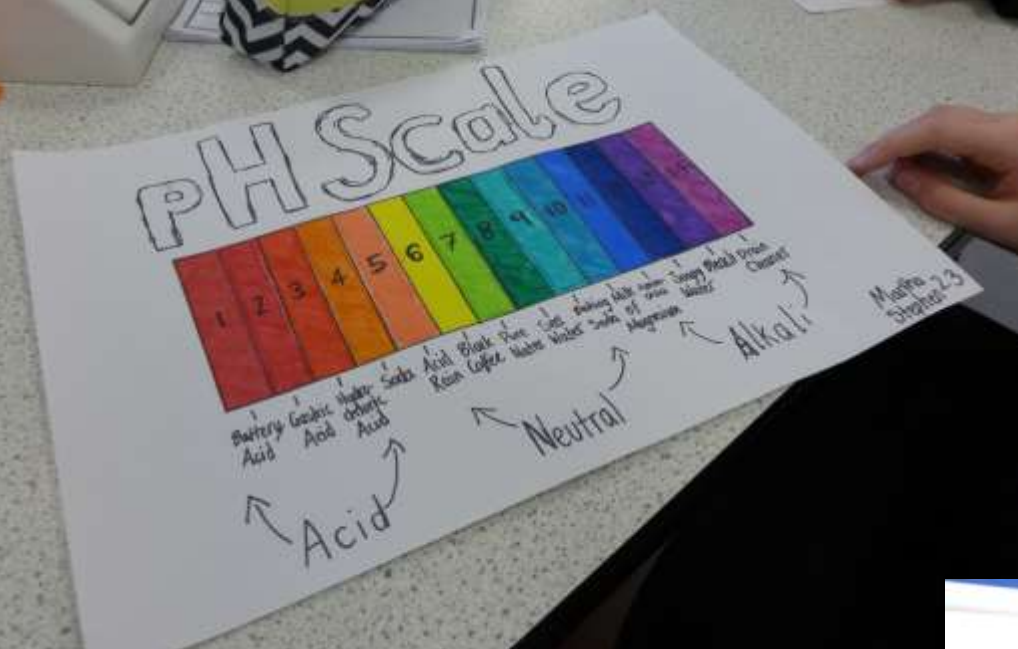 pH Scale
1 2 3 4 5 6 7 8 9 10 11 12 13 14
Battery Acid
Gastric Acid
Hydrochloric Acid
Soda
Acid Rain
Black Coffee
Pure Water
Sea Water
Baking Soda
Milk of Magnesium
Soapy Water
Bleach
Drain Cleaner
Acid
Neutral
Alkali
Martha
Stephen 2-3